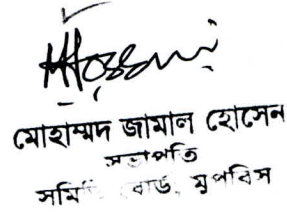 মোহাম্মদ জামাল হোসেন
সভাপতি
সমিতি বোর্ড, মুপবিস